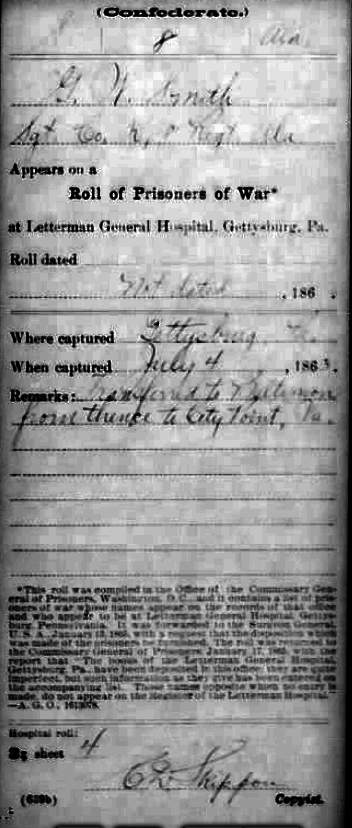 (Confederate.)
8 Ala
G. W. Smith
Sgt. Co. 8 Regt. Ala
Appears on a
Roll of Prisoners of War*
at Letterman General Hospital, Gettysburg, Pa.
Roll dated
Not dated, 186 .
Where captured Gettysburg
When captured July 4, 1863.
Remarks: Transferred to Baltimore
from thence to City Point, Va.
*This roll was compiled in the Office of the Commissary Gen-
eral of Prisoners, Washington, D. C., and it contains a list of pris-
oners of war whose names appear on the records of that office
and who appear to be at Letterman General Hospital, Gettys-
burg, Penna. It was forwarded to the Surgeon General,
U. S. A., January 1865, with a request that the disposition which
was made of the prisoners be furnished. The roll was returned to
the Commissary General of Prisoners, January 17, 1865, with the
report that "The books of the Letterman General Hospital,
Gettysburg, Pa., have been deposited in this office; they are quite
imperfect, but such information as they give has been entered on
the accompanying list. Those names opposite which no entry is
made, do not appear on the Register of the Letterman Hospital."
—A. G. O.,
Hospital roll:
sheet 4
Skippon
(639b) Copyist.